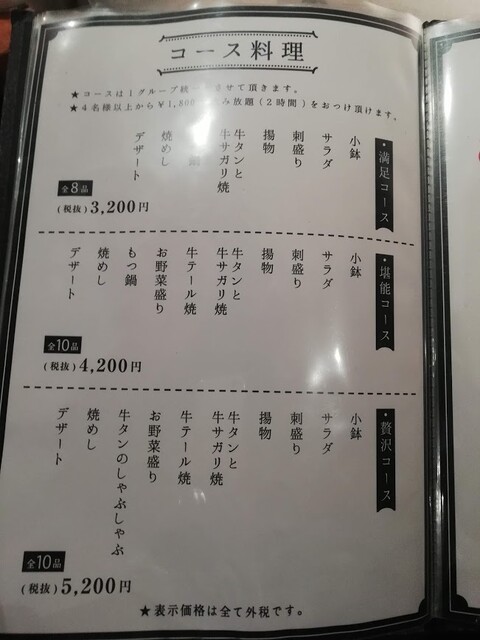 コース料理
★コースは1グループ統一させて頂きます。
★4名様以上から¥1,800 み放題(2時間)をおつけ頂けます。
・満足コース
小鉢
サラダ
刺盛り
揚物
牛タンと
牛サガリ焼
鍋
焼めし
デザート
全8品
(税抜)3,200円
・堪能コース
小鉢
サラダ
刺盛り
揚物
牛タンと
牛サガリ焼
牛テール焼
お野菜盛り
もつ鍋
焼めし
デザート
全10品
(税抜)4,200円
・贅沢コース
小鉢
サラダ
刺盛り
揚物
牛タンと
牛サガリ焼
牛テール焼
お野菜盛り
牛タンのしゃぶしゃぶ
焼めし
デザート
全10品
(税抜)5,200円
★表示価格は全て外税です。